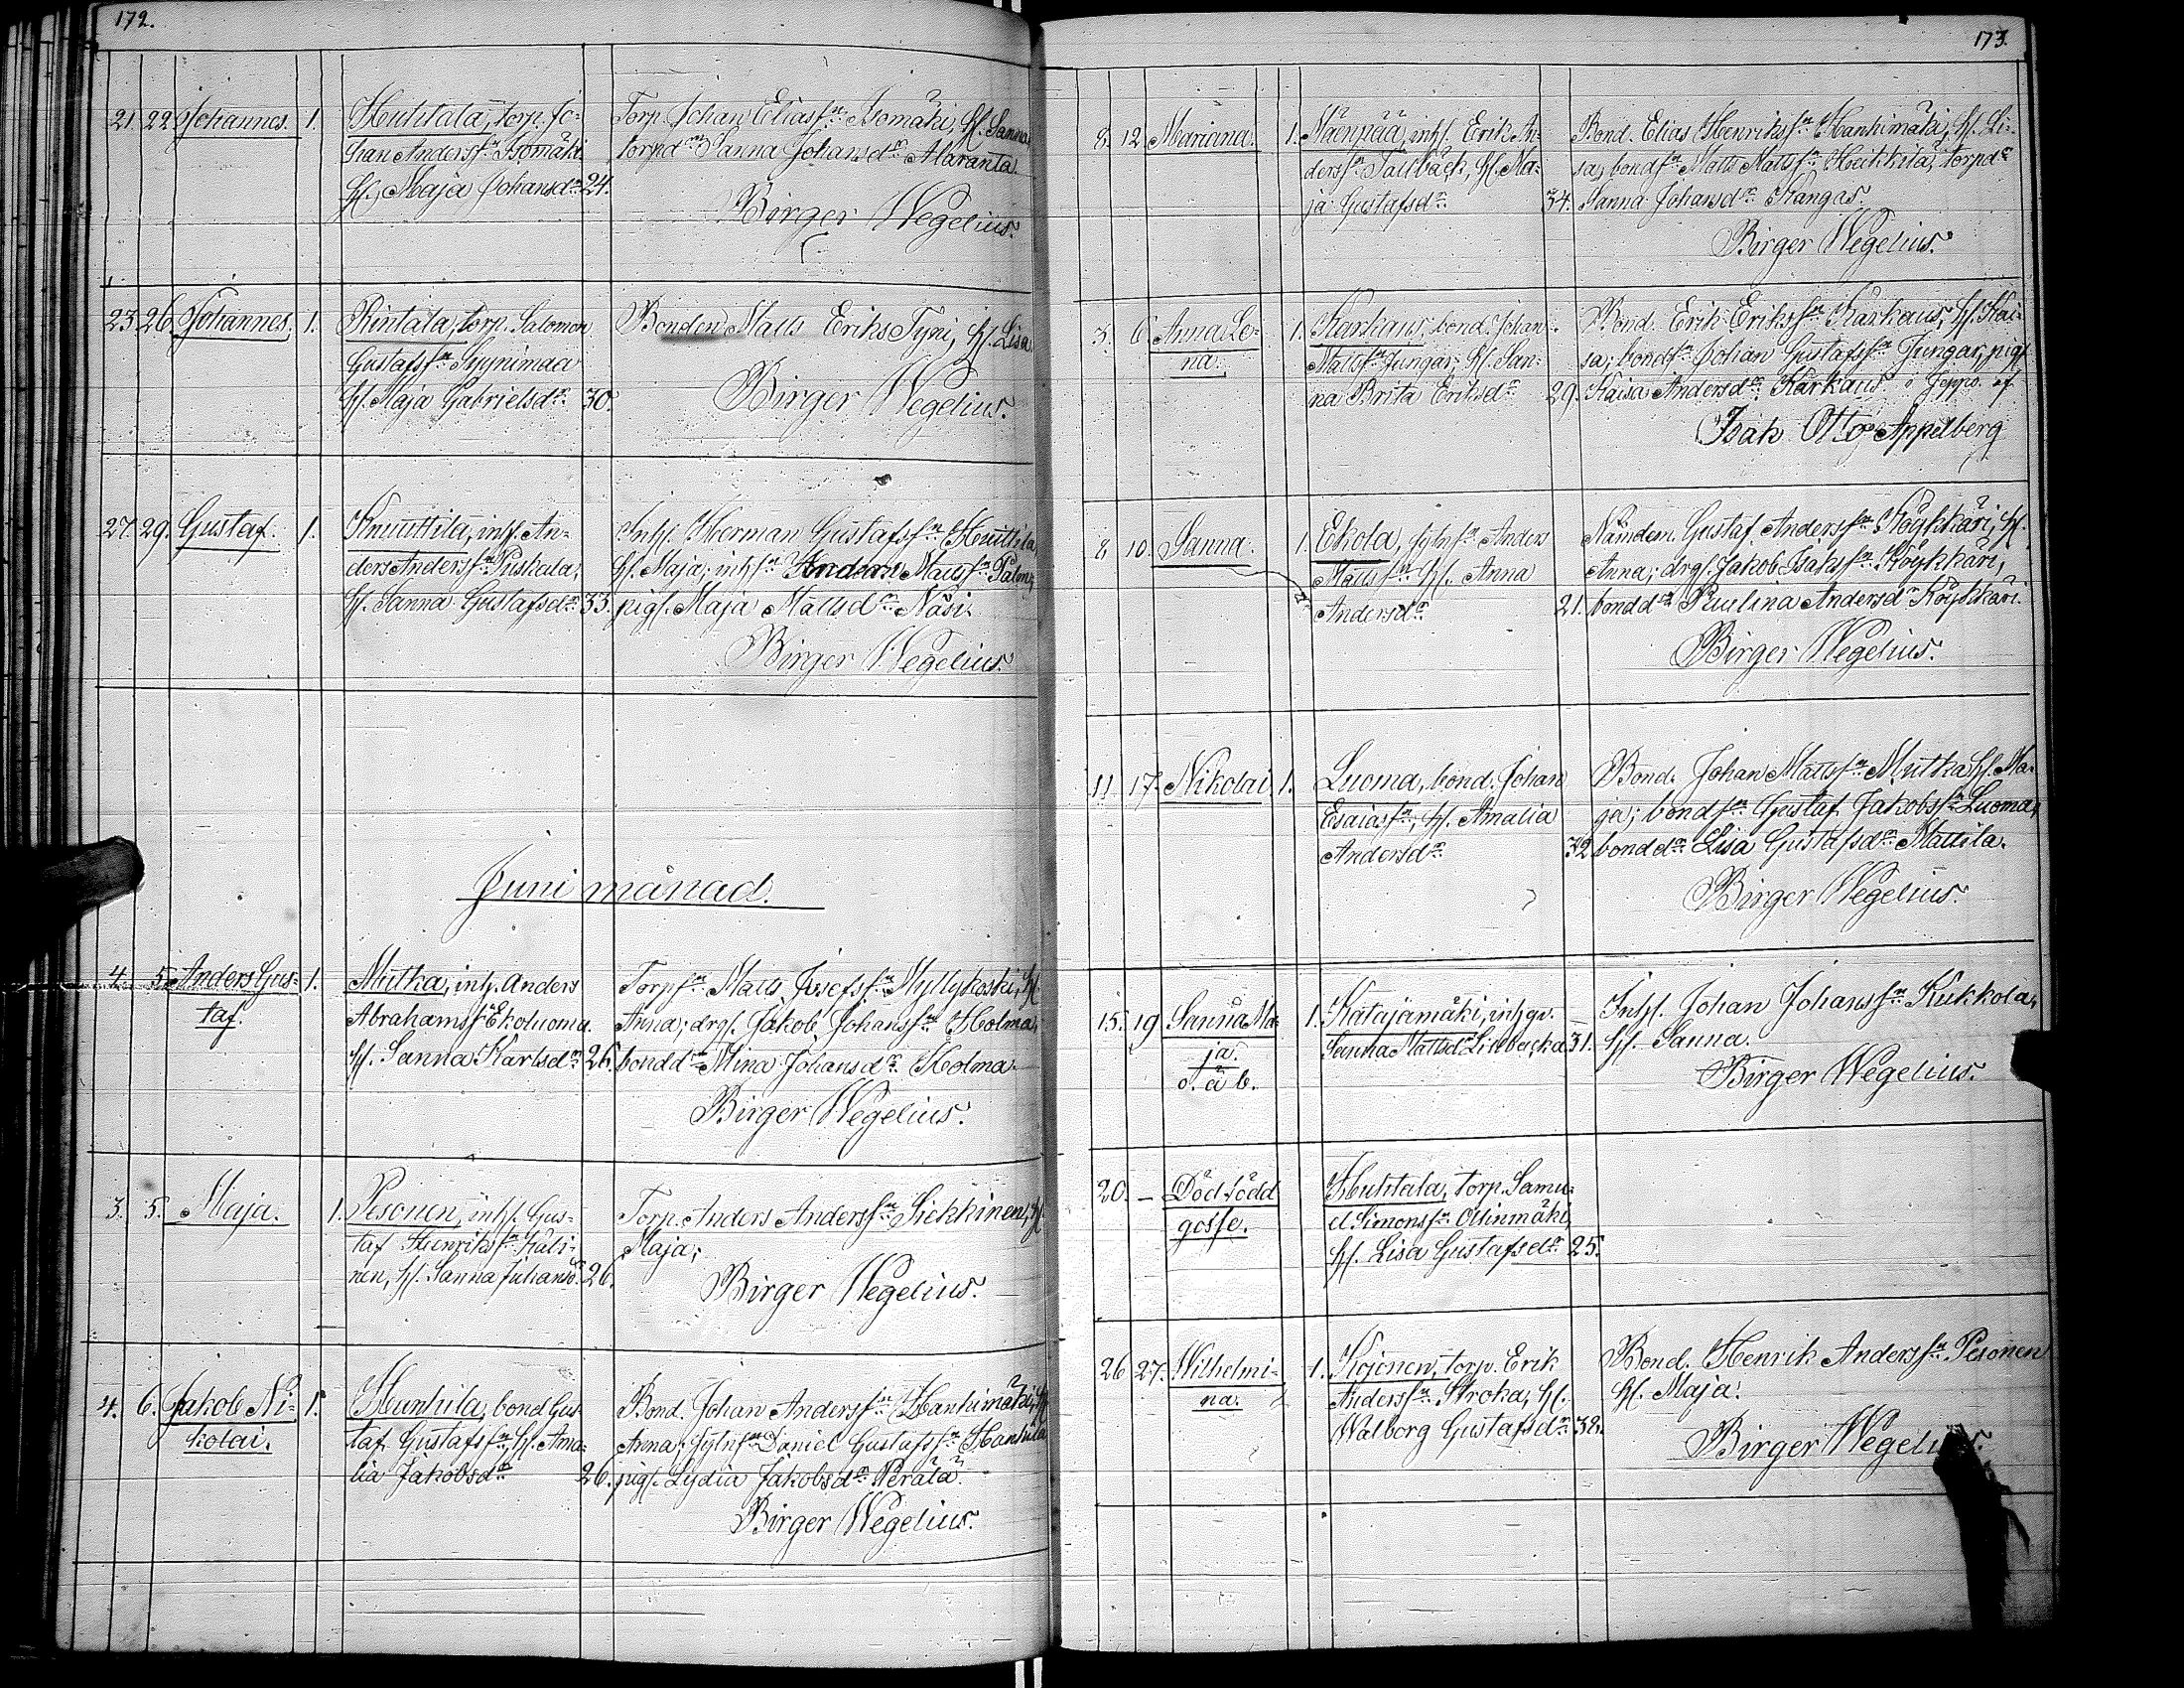 172.
21. 22. Johannes. 1. Huhtala, torp. Jo-
han Anderssn Isomäki
hf. Maja Johansdr 24.
Torp. Johan Eliassn Isomäki, hf. Sanna,
torpdr Sanna Johansdr Alaranta.
Birger Wegelius.
23. 26. Johannes. 1. Rintala, torp. Salomon
Gustafssn Syynimaa
hf. Maja Gabrielsdr 30.
Bonden Matts Eriks Tyni, hf. Lisa
Birger Wegelius.
27. 29. Gustaf. 1. Knuuttila, inhs. An-
ders Anderssn Puskala,
hf. Sanna Gustafsdr 33.
Inhs. Herman Gustafssn Huhtila,
hf. Maja; inhssn Anders Mattssn
pigs. Maja Mattsdr Näsi.
Birger Wegelius.
Juni månad.
4. 5. Anders Gus- 1.
taf.
Mutka, inh. Anders
Abrahamssn Ekoluoma.
hf. Sanna Karlsdr 26.
Torpsn Matts Josefssn Myllykoski, hf.
Anna; drgs. Jakob Johanssn Holma,
bonddr Mina Johansdr Holma.
Birger Wegelius.
3. 5. Maja. 1. Pesonen, inhs. Gus-
taf Henrikssn Kali-
nen, hf. Sanna Johansdr 26.
Torp. Anders Anderssn Siekkinen, hf.
Maja;
Birger Wegelius.
4. 6. Jakob Ni- 1.
kolai.
Hunhila, bond Gus-
taf Gustafssn, hf. Ama-
lia Jakobsdr 26.
Bond. Johan Anderssn Hanhimäki, hf.
Anna; sytnsn Daniel Gustafssn Hanhila
pigs. Lydia Jakobsdr Perälä.
Birger Wegelius.
173.
8. 12. Mariana. 1. Mäenpää, inhs. Erik An-
derssn Tallbäck, hf. Ma-
ja Gustafsdr 34.
Bond. Elias Henrikssn Hanhimäki, hf. Li-
sa; bondsn Matts Mattssn Heikkilä, torpdr
Sanna Johansdr Kangas.
Birger Wegelius.
3. 6. Anna Le- 1.
na.
Karkaus, bond. Johan
Mattssn Jungar, hf. San-
na Brita Eriksdr 29.
Bond. Erik Erikssn Karkaus, hf. Kai-
sa; bondsn Johan Gustafssn Jungar, pigs.
Kaisa Andersdr Karkaus i Jeppo. af
Isak Otto Appelberg
8 10. Sanna. 1. Ekola, sytnsn Anders
Mattssn hf. Anna
Andersdr 21.
Nämdem. Gustaf Anderssn Köykkäri, hf.
Anna; drgs. Jakob Isakssn Köykkäri,
bonddr Paulina Andersdr Köykkäri.
Birger Wegelius.
11. 17. Nikolai 1. Luoma, bond. Johan
Esaiassn, hf. Amalia
Andersdr 32
Bond. Johan Mattssn Mutka, hf. Ma-
ja; bondsn Gustaf Jakobssn Luoma,
bonddr Lisa Gustafsdr Mattila.
Birger Wegelius.
15. 19. Sanna Ma- 1.
ja.
o. ä b.
Katajamäki, inhqv.
Sanna Mattsdr Linbacka 31.
Inhs. Johan Johanssn Kukkola,
hf. Sanna.
Birger Wegelius.
20. — Död född
gosse.
Huhtala, torp. Samu-
el Simonssn Ollinmäki,
hf. Lisa Gustafsdr 25.
26. 27. Wilhelmi- 1.
na.
Kojonen, torp. Erik
Anderssn Stroka, hf.
Walborg Gustafsdr 32.
Bond. Henrik Anderssn Pesonen
hf. Maja.
Birger Wegelius.